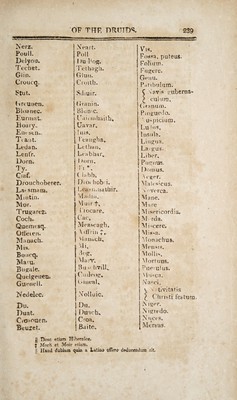 OF THE DRUIDS. 239
Nerz. Neart. Vis.
Poull. Poll Fossa, puteus.
Delyou. Duilleog. Folium.
Techet. Teithagh. Fugere.
Glin. Glun. Genu.
Croucq. Croith. Patibulum.
Stut. Sduir. Navis guberna-
culum.
Greunen. Granin. Granum.
Blonnec. Pinguedo.
Eurmat. Auspicium.
Uavar.
Enesen. Inis. Insula.
Teaut. Teangha, Lingua.
Ledan. Lethan, Largus.
Lenfr. Leabhar, Liber.
Dorn. Dorn, Pugnus.
Ty. Domus.
Claf.
Drouchoberer. Maleficus.
Noverca.
Moitin. Maidin. Mane.
Nuz. Mare
Trugarez. Trocare, Misericordia.
Coch. Cac, Merda.
Quemesq. Meascagh, Miscere.
Offeren. Aiffrin ‡, Missa.
Manach. Manach, Monachus.
Mis. Mi, Mensis.
Boucq. Bog, Mollis.
Maru. Marv, Mortuus.
Bugale. Buachoill, Puerulus.
Quelyenen. Cuileog, Musca.
Guenell. Nasci,
Nedelec. Nolluic, Nativitatis
Christi festum.
Du. Du, Niger.
Duat. Dutch, Nigredo.
Cnaouen. Cnu, Nuces.
Beuzet. Baite, Mersus.
§ Deas etiam Hibernice.
† Muck et Moir etiam.
‡ Haud dubium quin a Latino offero deducendum sit.